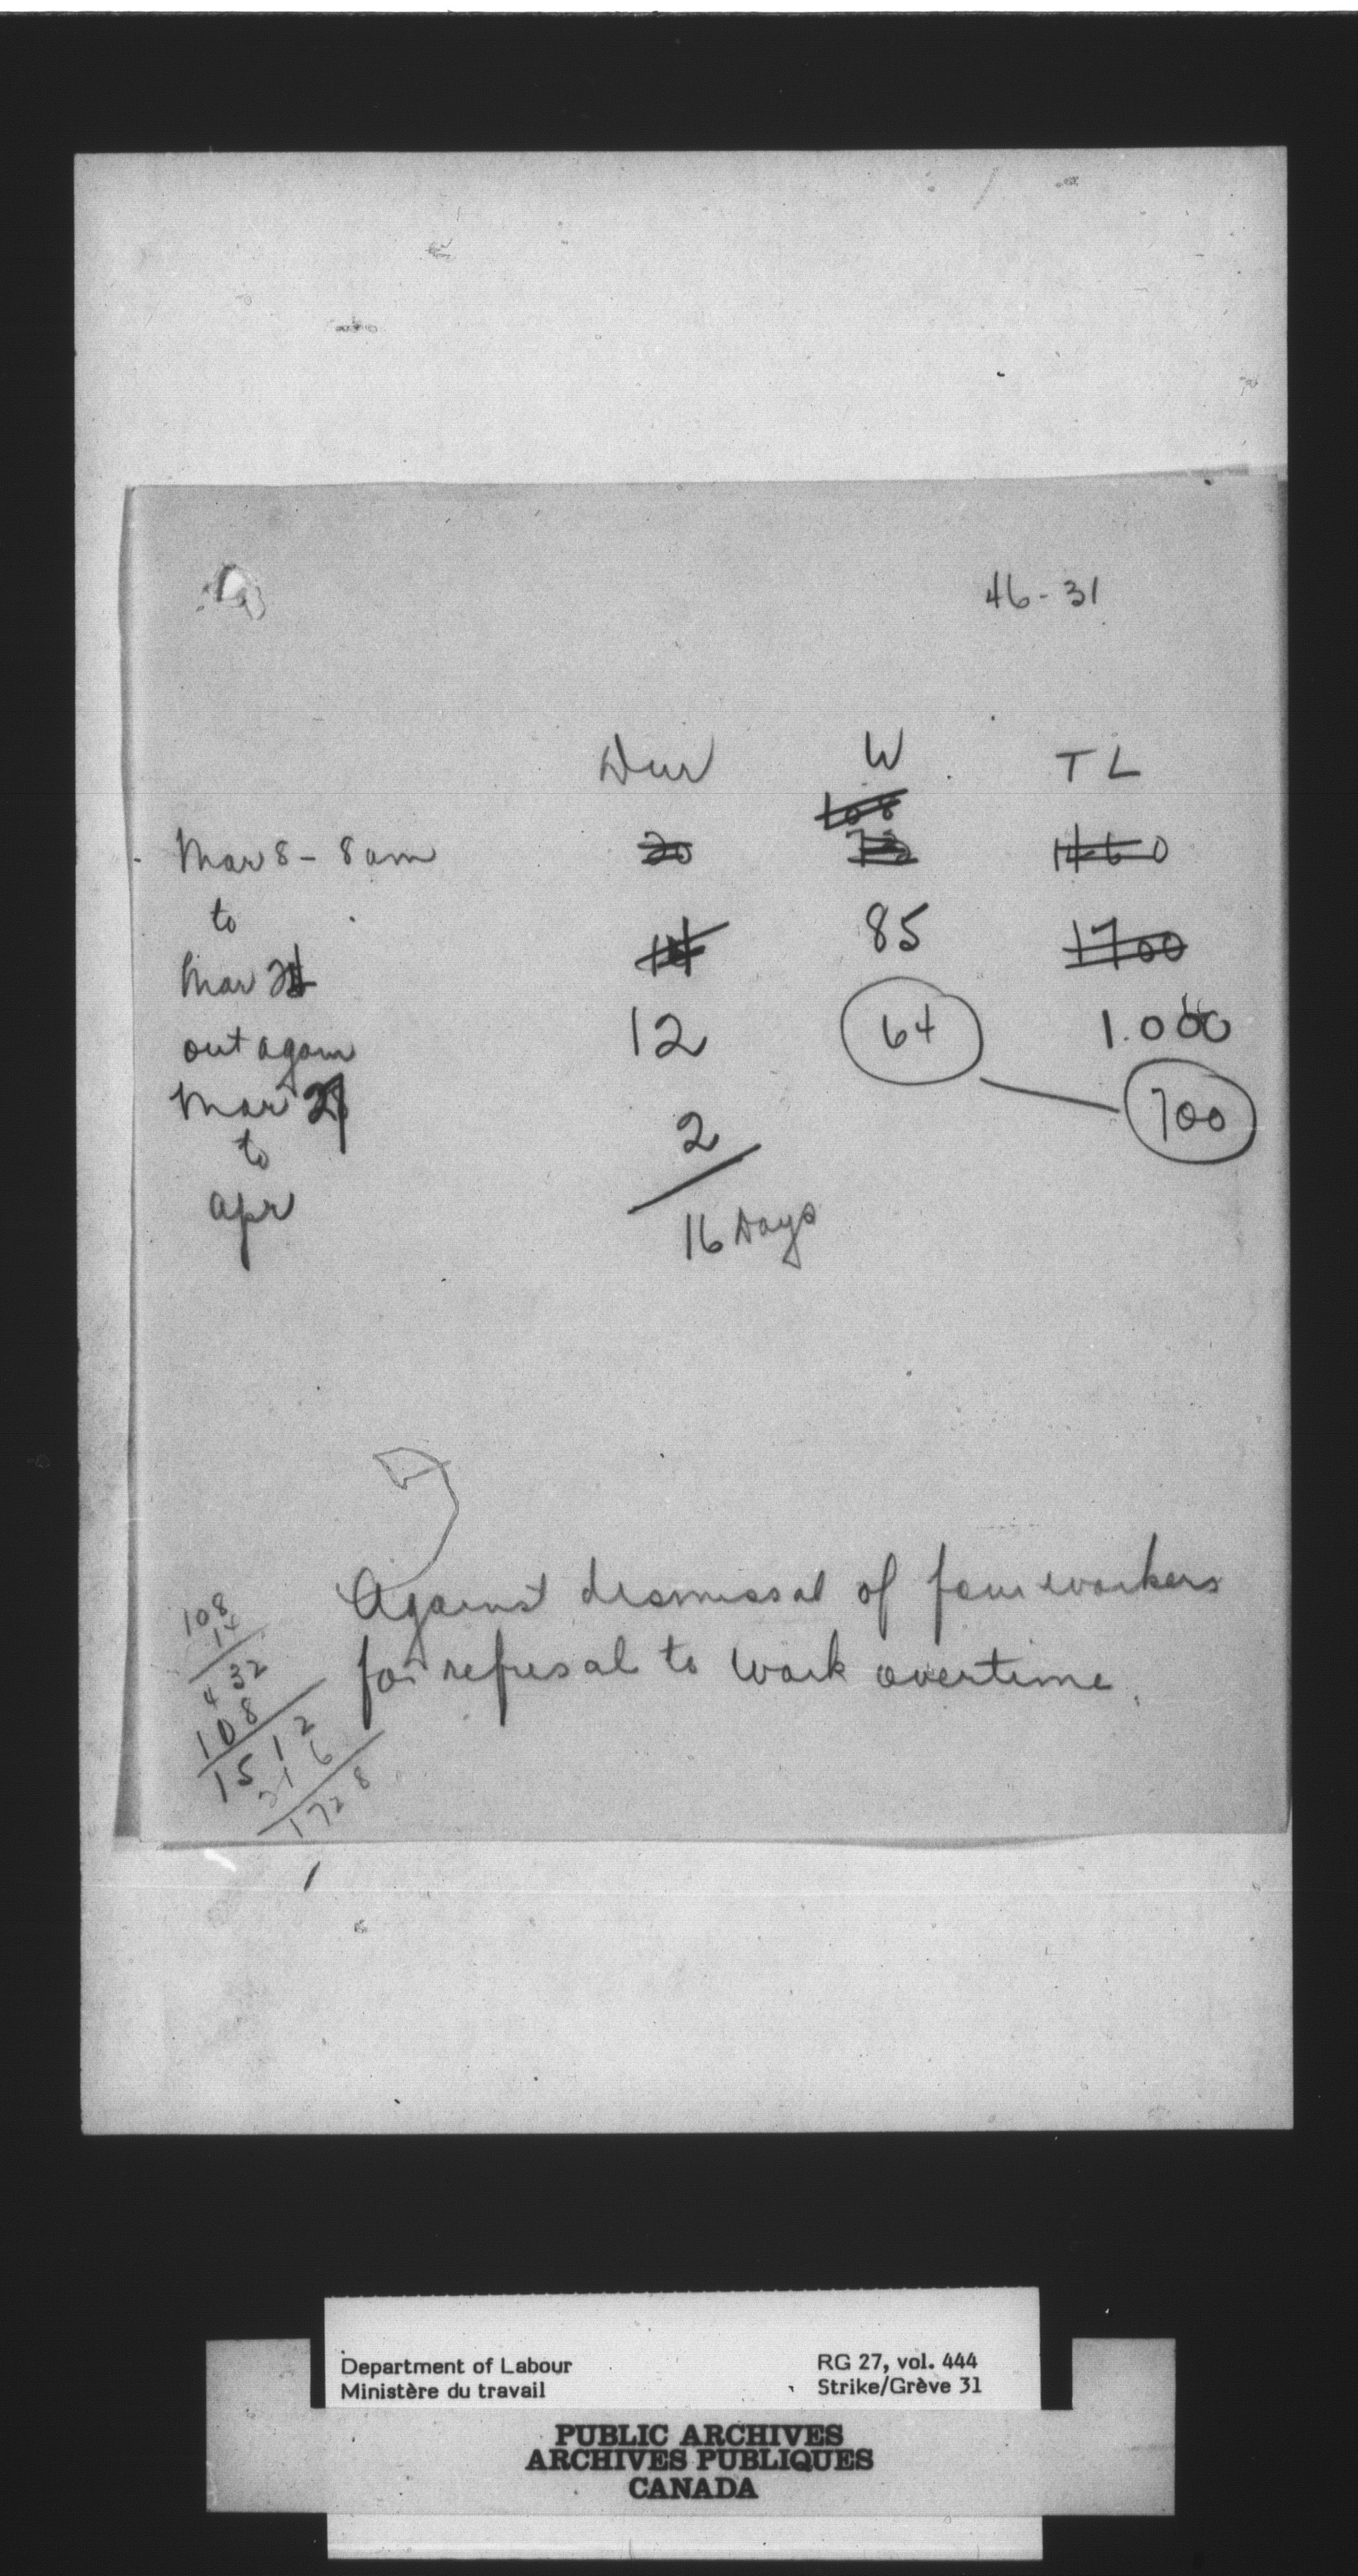 46-31
Dur W TL
108
Mar 8 - 8 am 20 73 1460
to
85
Mar 14 1700
out again 12 64 1.000
Mar
700
to 2
Apr
16 Days
Against dismissal of four workers
for refusal to work overtime.
108
14
432
108
1512
216
1728
Department of Labour RG 27, vol. 444
Ministère du travail Strike/Grève 31
PUBLIC ARCHIVES
ARCHIVES PUBLIQUES
CANADA